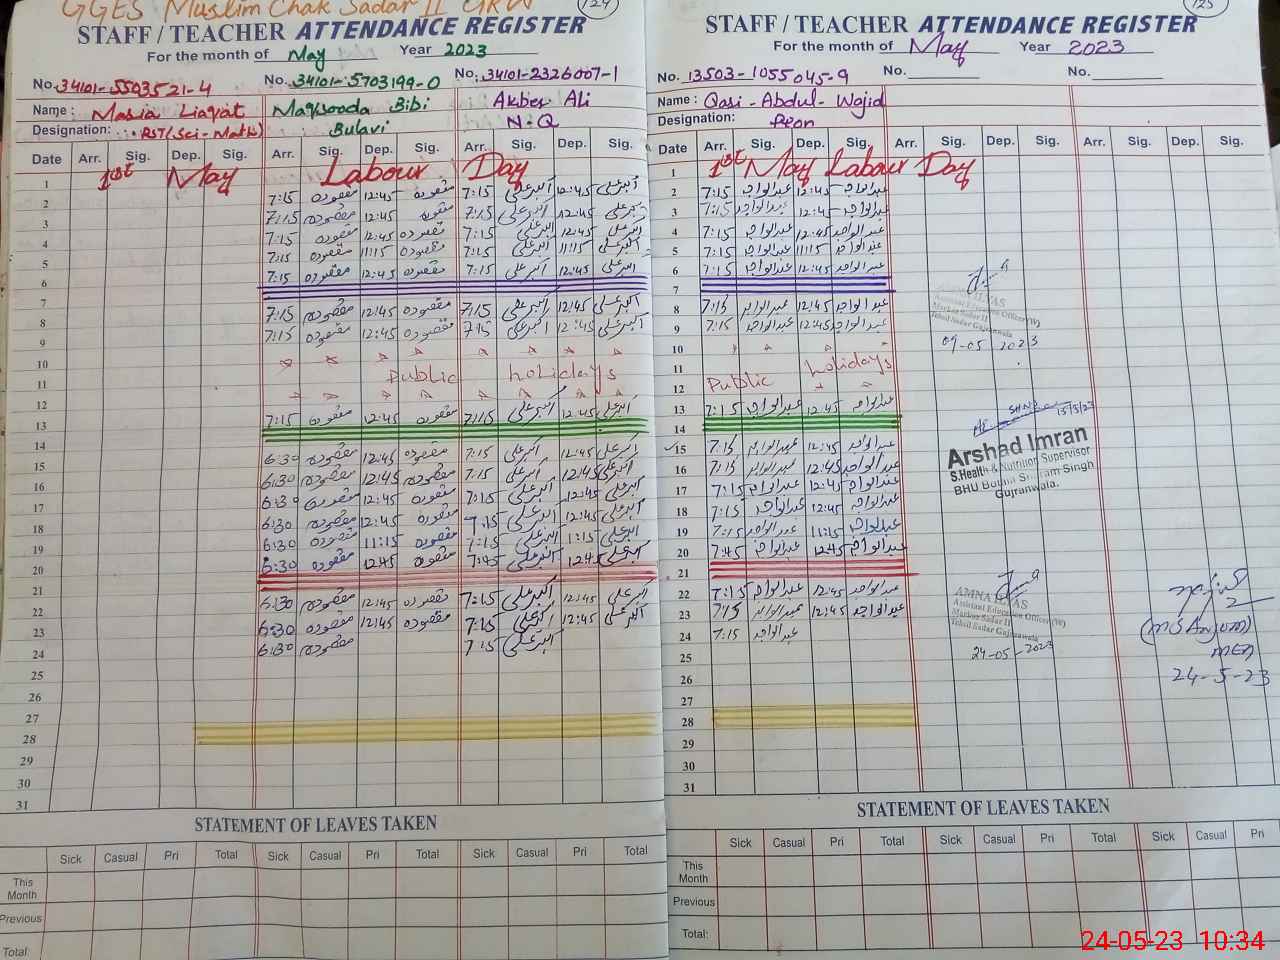 GGES Muslim Chak Sadar II GRW
124
STAFF / TEACHER ATTENDANCE REGISTER
For the month of May Year 2023
No. 34101-5503521-4 No. 34101-5703199-0 No. 34101-2326007-1
Name : Masia Liaqat Maqsooda Bibi Akber Ali
Designation: RST(Sci-Math) Bulavi N-Q
Date Arr. Sig. Dep. Sig. Arr. Sig. Dep. Sig. Arr. Sig. Dep. Sig.
1 1st May Labour Day
2 7:15 مقصودہ 12:45 مقصودہ 7:15 اکبر علی 12:45 اکبر علی
3 7:15 مقصودہ 12:45 مقصودہ 7:15 اکبر علی 12:45 اکبر علی
4 7:15 مقصودہ 12:45 مقصودہ 7:15 اکبر علی 12:45 اکبر علی
5 7:15 مقصودہ 11:15 مقصودہ 7:15 اکبر علی 11:15 اکبر علی
6 7:15 مقصودہ 12:45 مقصودہ 7:15 اکبر علی 12:45 اکبر علی
7
8 7:15 مقصودہ 12:45 مقصودہ 7:15 اکبر علی 12:45 اکبر علی
9 7:15 مقصودہ 12:45 مقصودہ 7:15 اکبر علی 12:45 اکبر علی
10
11 Public holidays
12
13 7:15 مقصودہ 12:45 مقصودہ 7:15 اکبر علی 12:45 اکبر علی
14
15 6:30 مقصودہ 12:45 مقصودہ 7:15 اکبر علی 12:45 اکبر علی
16 6:30 مقصودہ 12:45 مقصودہ 7:15 اکبر علی 12:45 اکبر علی
17 6:30 مقصودہ 12:45 مقصودہ 7:15 اکبر علی 12:45 اکبر علی
18 6:30 مقصودہ 12:45 مقصودہ 7:15 اکبر علی 12:45 اکبر علی
19 6:30 مقصودہ 11:15 مقصودہ 7:15 اکبر علی 1:15 اکبر علی
20 6:30 مقصودہ 12:45 مقصودہ 7:45 اکبر علی 12:45 اکبر علی
21
22 6:30 مقصودہ 12:45 مقصودہ 7:15 اکبر علی 12:45 اکبر علی
23 6:30 مقصودہ 12:45 مقصودہ 7:15 اکبر علی 12:45 اکبر علی
24 6:30 مقصودہ 7:15 اکبر علی
25
26
27
28
29
30
31
STATEMENT OF LEAVES TAKEN
Sick Casual Pri Total Sick Casual Pri Total Sick Casual Pri Total
This Month
Previous
Total:
125
STAFF / TEACHER ATTENDANCE REGISTER
For the month of May Year 2023
No. 13503-1055045-9 No. No.
Name : Qasi-Abdul-Wajid
Designation: Peon
Date Arr. Sig. Dep. Sig. Arr. Sig. Dep. Sig. Arr. Sig. Dep. Sig.
1 1st May Labour Day
2 7:15 عبدالواجد 12:45 عبدالواجد
3 7:15 عبدالواجد 12:45 عبدالواجد
4 7:15 عبدالواجد 12:45 عبدالواجد
5 7:15 عبدالواجد 11:15 عبدالواجد
6 7:15 عبدالواجد 12:45 عبدالواجد
7
8 7:15 عبدالواجد 12:45 عبدالواجد
9 7:15 عبدالواجد 12:45 عبدالواجد
10
11 Public holidays
12
13 7:15 عبدالواجد 12:45 عبدالواجد
14
15 7:15 عبدالواجد 12:45 عبدالواجد
16 7:15 عبدالواجد 12:45 عبدالواجد
17 7:15 عبدالواجد 12:45 عبدالواجد
18 7:15 عبدالواجد 12:45 عبدالواجد
19 7:15 عبدالواجد 11:15 عبدالواجد
20 7:45 عبدالواجد 12:45 عبدالواجد
21
22 7:15 عبدالواجد 12:45 عبدالواجد
23 7:15 عبدالواجد 12:45 عبدالواجد
24 7:15 عبدالواجد
25
26
27
28
29
30
31
AMNA ILYAS
Assistant Education Officer (W)
Markaz Sadar II
Tehsil Sadar Gujranwala
09-05 2023
15/5/23
Arshad Imran
S.Health & Nutrition Supervisor
BHU Singh
Gujranwala.
AMNA ILYAS
Assistant Education Officer (W)
Markaz Sadar II
Tehsil Sadar Gujranwala
24-05-2023
(MS Anjum)
MEA
24-5-23
STATEMENT OF LEAVES TAKEN
Sick Casual Pri Total Sick Casual Pri Total Sick Casual Pri
This Month
Previous
Total:
24-05-23 10:34